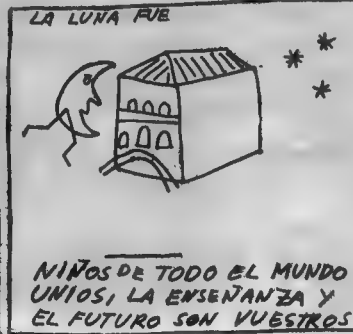 LA LUNA FUE
NIÑOS DE TODO EL MUNDO
UNIOS, LA ENSEÑANZA Y
EL FUTURO SON VUESTROS